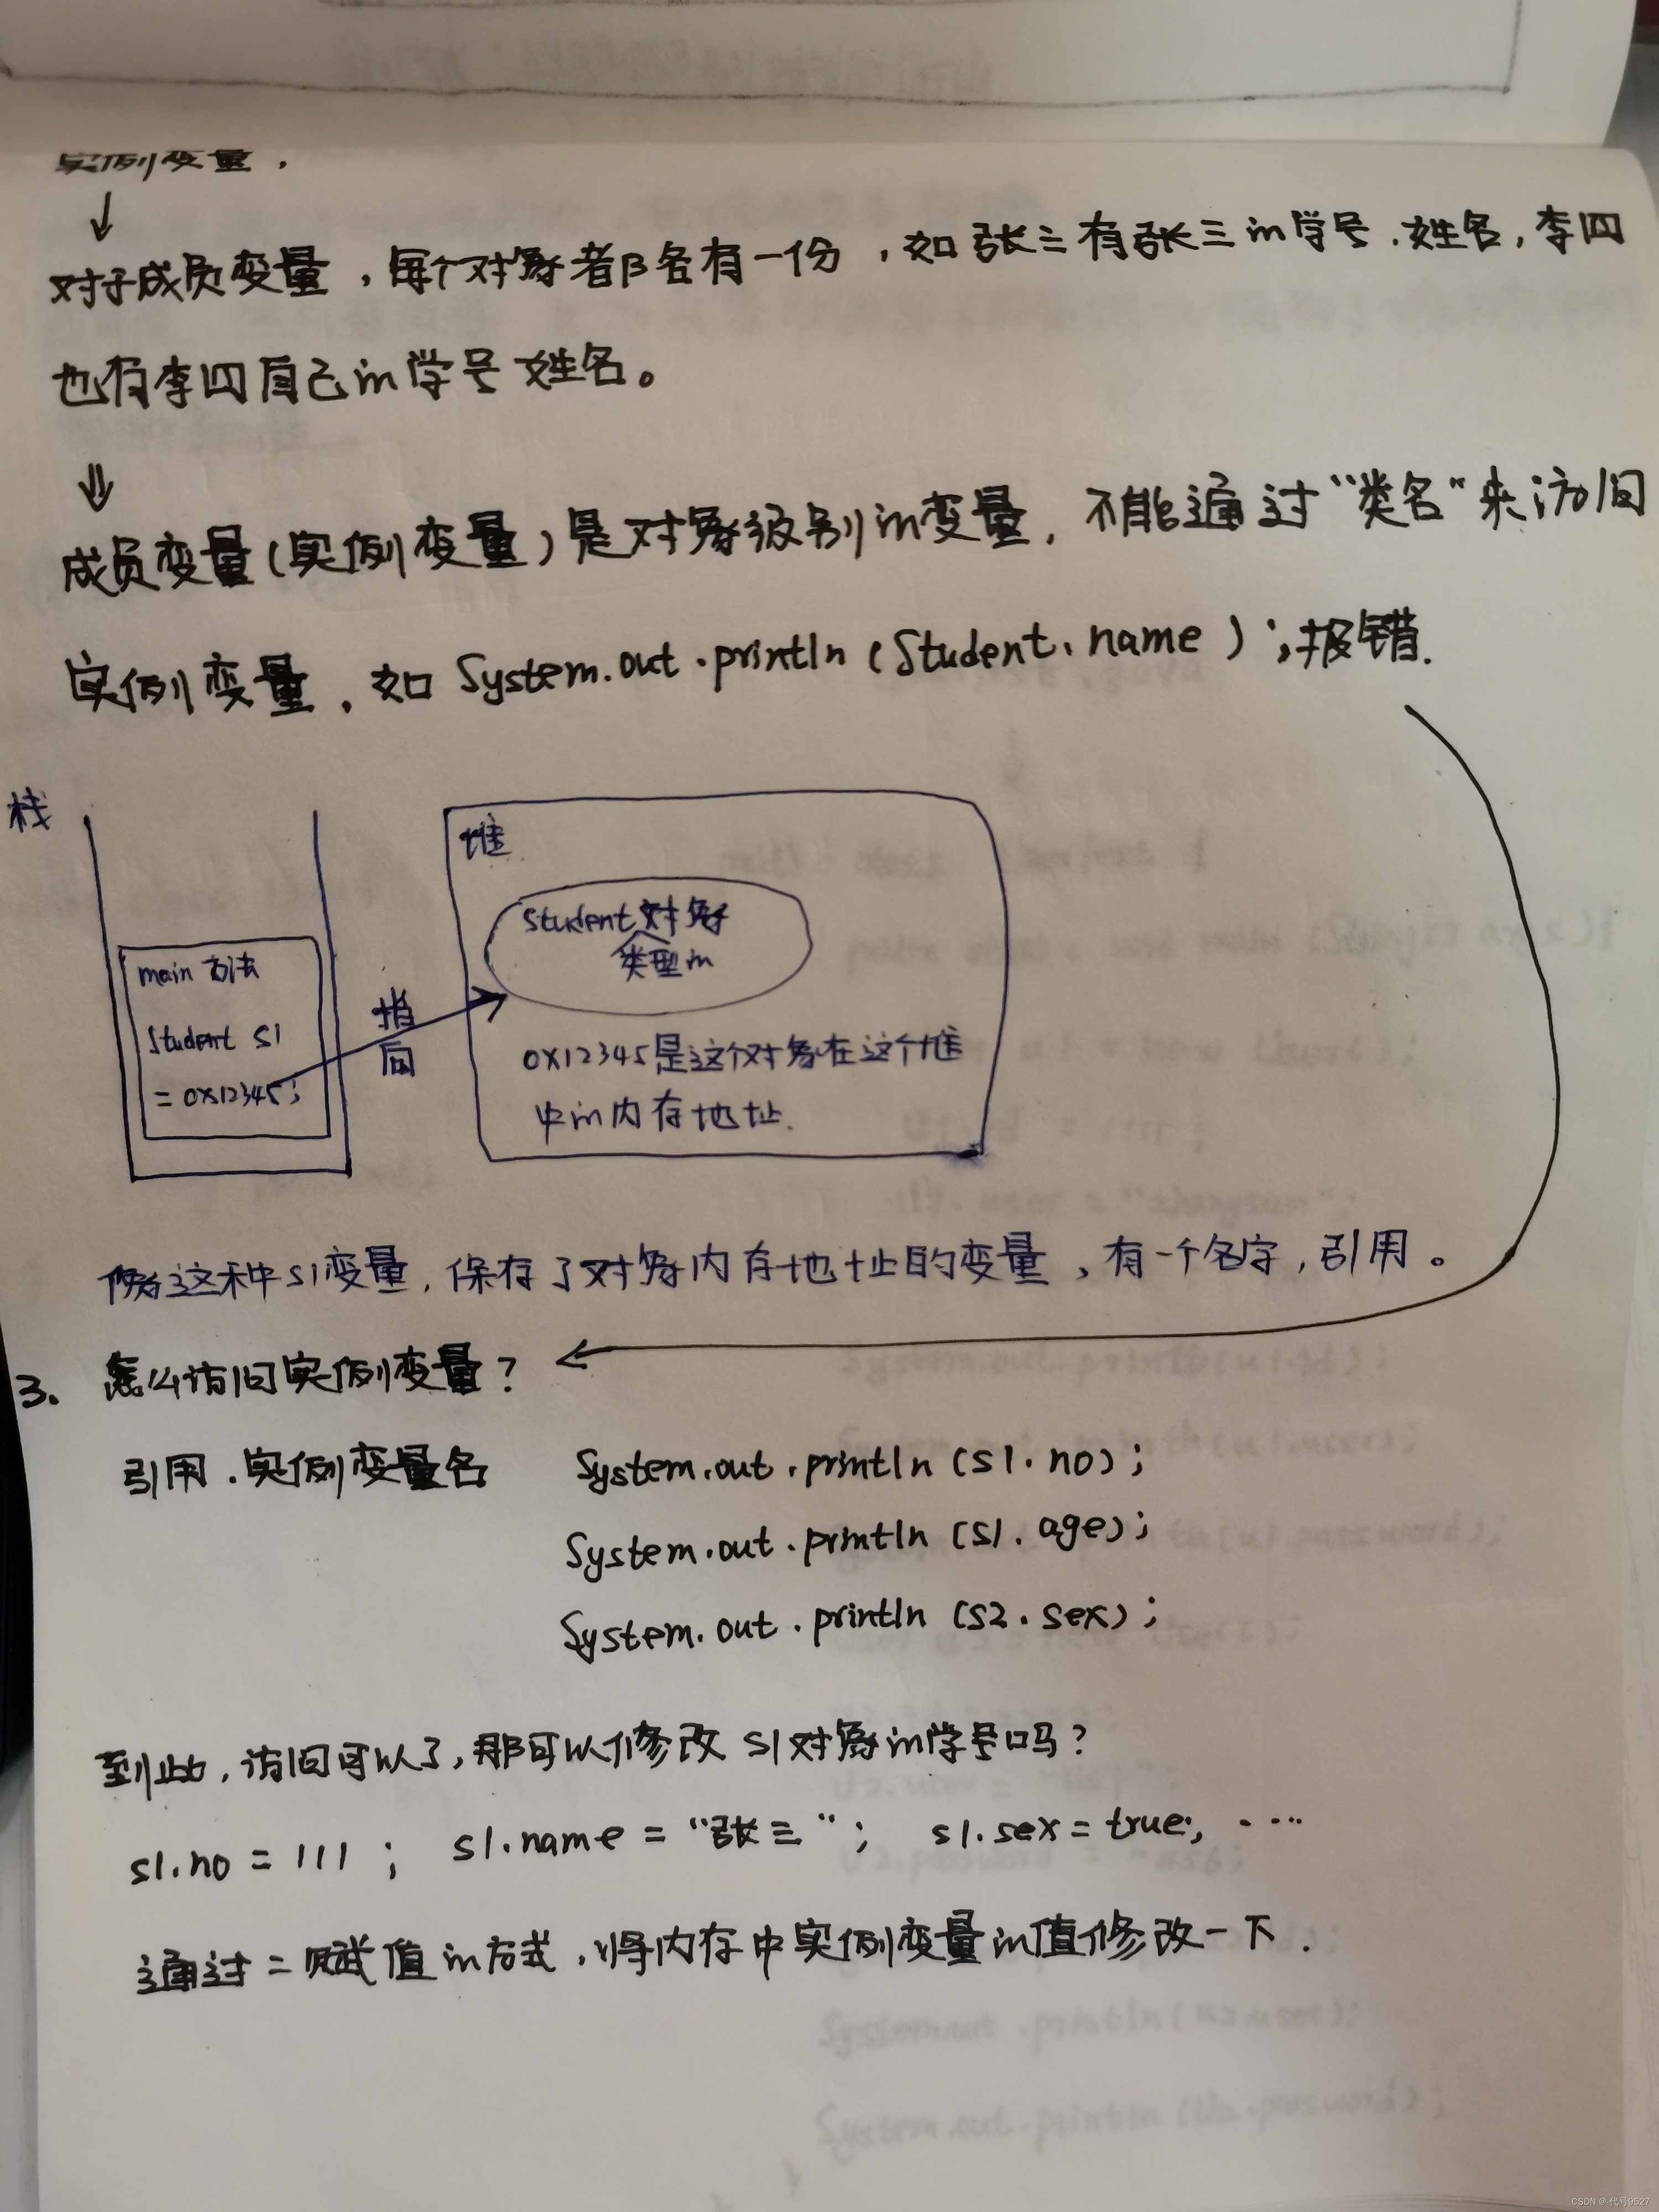 实例变量，
↓
对于成员变量，每个对象都各有一份，如张三有张三的学号、姓名，李四
也有李四自己的学号姓名。
⇓
成员变量(实例变量)是对象级别的变量，不能通过“类名”来访问
实例变量，如 System.out.println(Student.name);报错.
栈
main方法
Student s1
= 0x12345;
指
向
堆
Student对象
类型的
0x12345是这个对象在这个堆
中的内存地址.
像这种s1变量，保存了对象内存地址的变量，有一个名字，引用。
3、怎么访问实例变量？
引用.实例变量名 System.out.println(s1.no);
System.out.println(s1.age);
System.out.println(s2.sex);
到此，访问可以了，那可以修改s1对象的学号吗？
s1.no = 111; s1.name = “张三”; s1.sex = true; ....
通过=赋值的方式，将内存中实例变量的值修改一下.
CSDN @代号9527